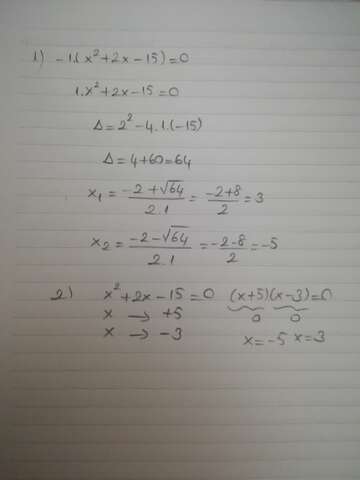 1) -1.(x²+2x-15)=0
1.x²+2x-15=0
Δ=2²-4.1.(-15)
Δ=4+60=64
x₁ = (-2+√64)/2.1 = (-2+8)/2 = 3
x₂ = (-2-√64)/2.1 = (-2-8)/2 = -5
2) x²+2x-15=0 (x+5)(x-3)=0
x → +5 0 0
x → -3 x=-5 x=3